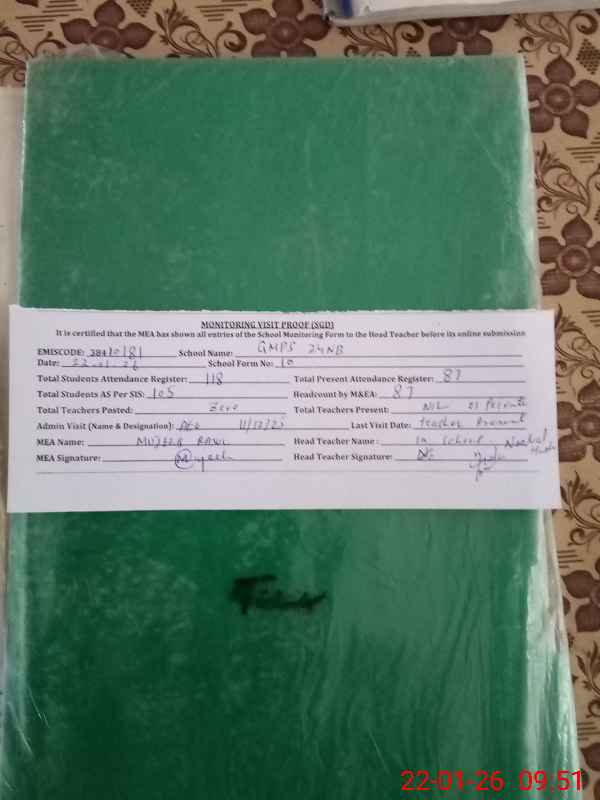 MONITORING VISIT PROOF (SGD)
It is certified that the MEA has shown all entries of the School Monitoring Form to the Head Teacher before its online submission
EMISCODE: 38410181 School Name: GMPS 24NB
Date: 22-01-26 School Form No: 10
Total Students Attendance Register: 118 Total Present Attendance Register: 87
Total Students AS Per SIS: 105 Headcount by M&EA: 87
Total Teachers Posted: Zero Total Teachers Present: NIL 01 Private
Admin Visit (Name & Designation): 11/12/25 Last Visit Date: teacher Present
MEA Name: MUJEEB Head Teacher Name: in School
MEA Signature: Mujeeb Head Teacher Signature:
22-01-26 09:51